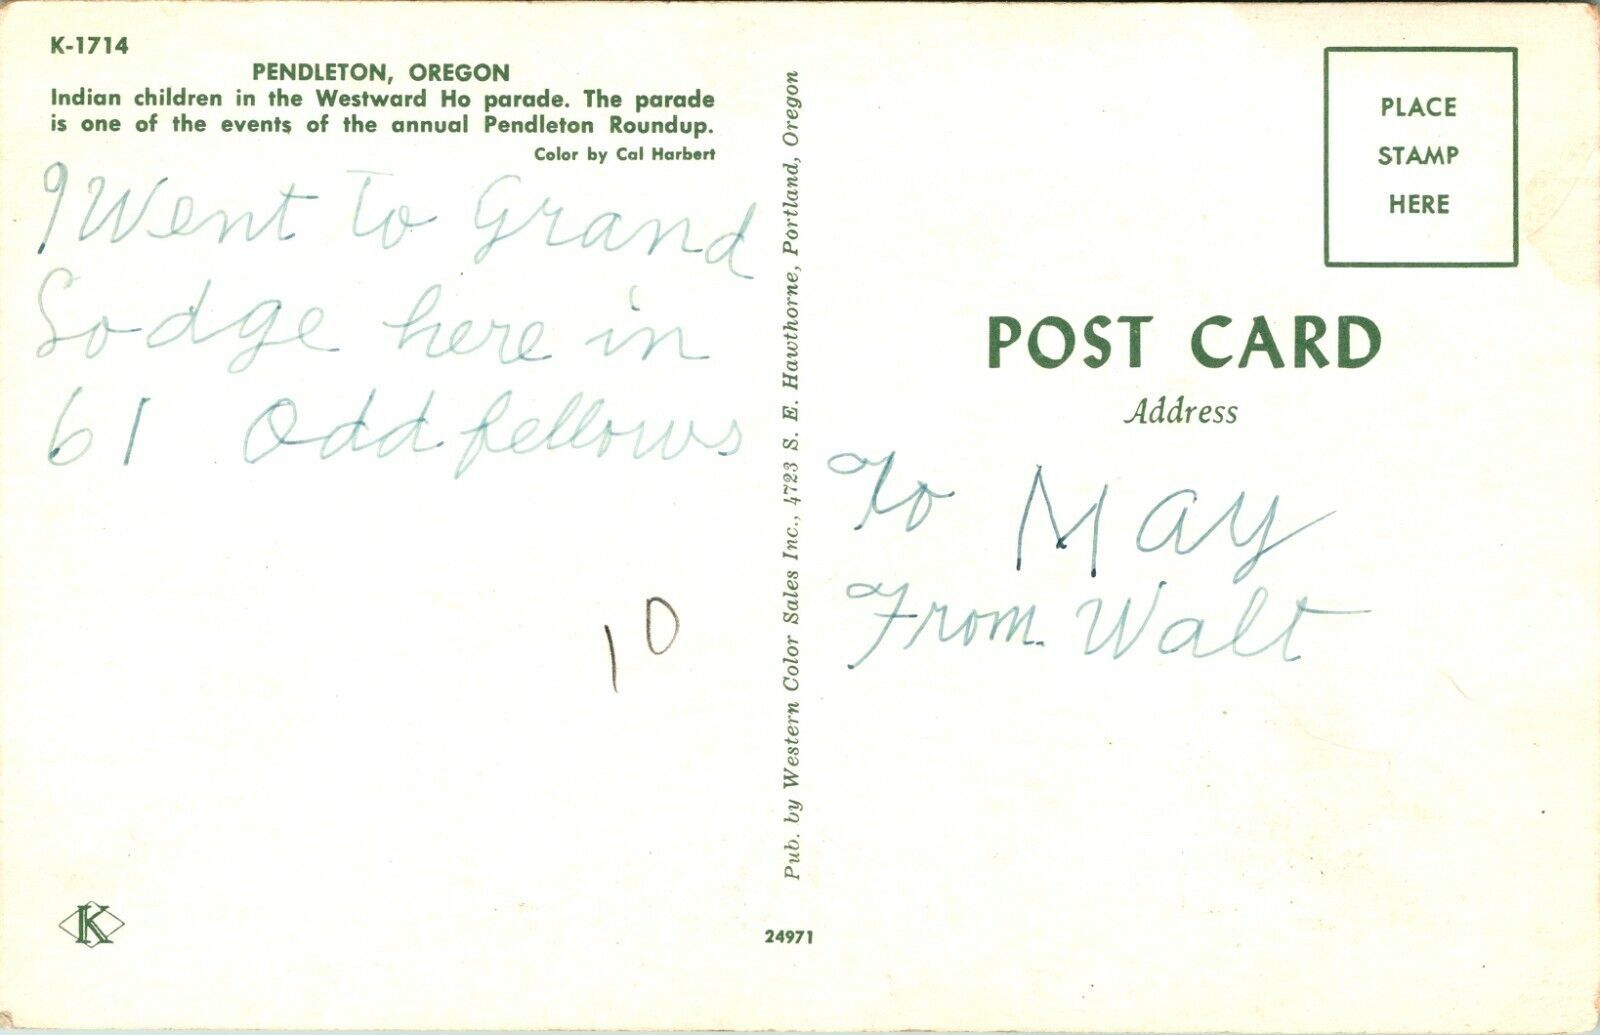 K-1714
PENDLETON, OREGON
Indian children in the Westward Ho parade. The parade
is one of the events of the annual Pendleton Roundup.
Color by Cal Harbert
I Went To Grand
Lodge here in
61 Oddfellows
10
K
Pub. by Western Color Sales Inc., 4723 S. E. Hawthorne, Portland, Oregon
24971
PLACE
STAMP
HERE
POST CARD
Address
To May
From Walt